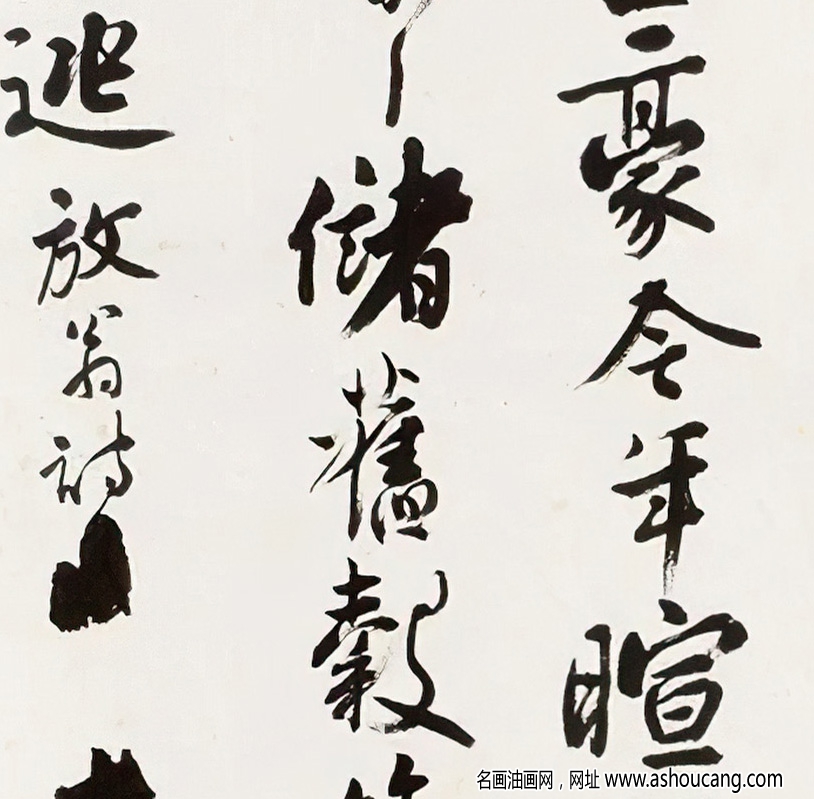 豪今年暄
儲舊穀
逃放翁詩
名画油画网，网址 www.ashoucang.com